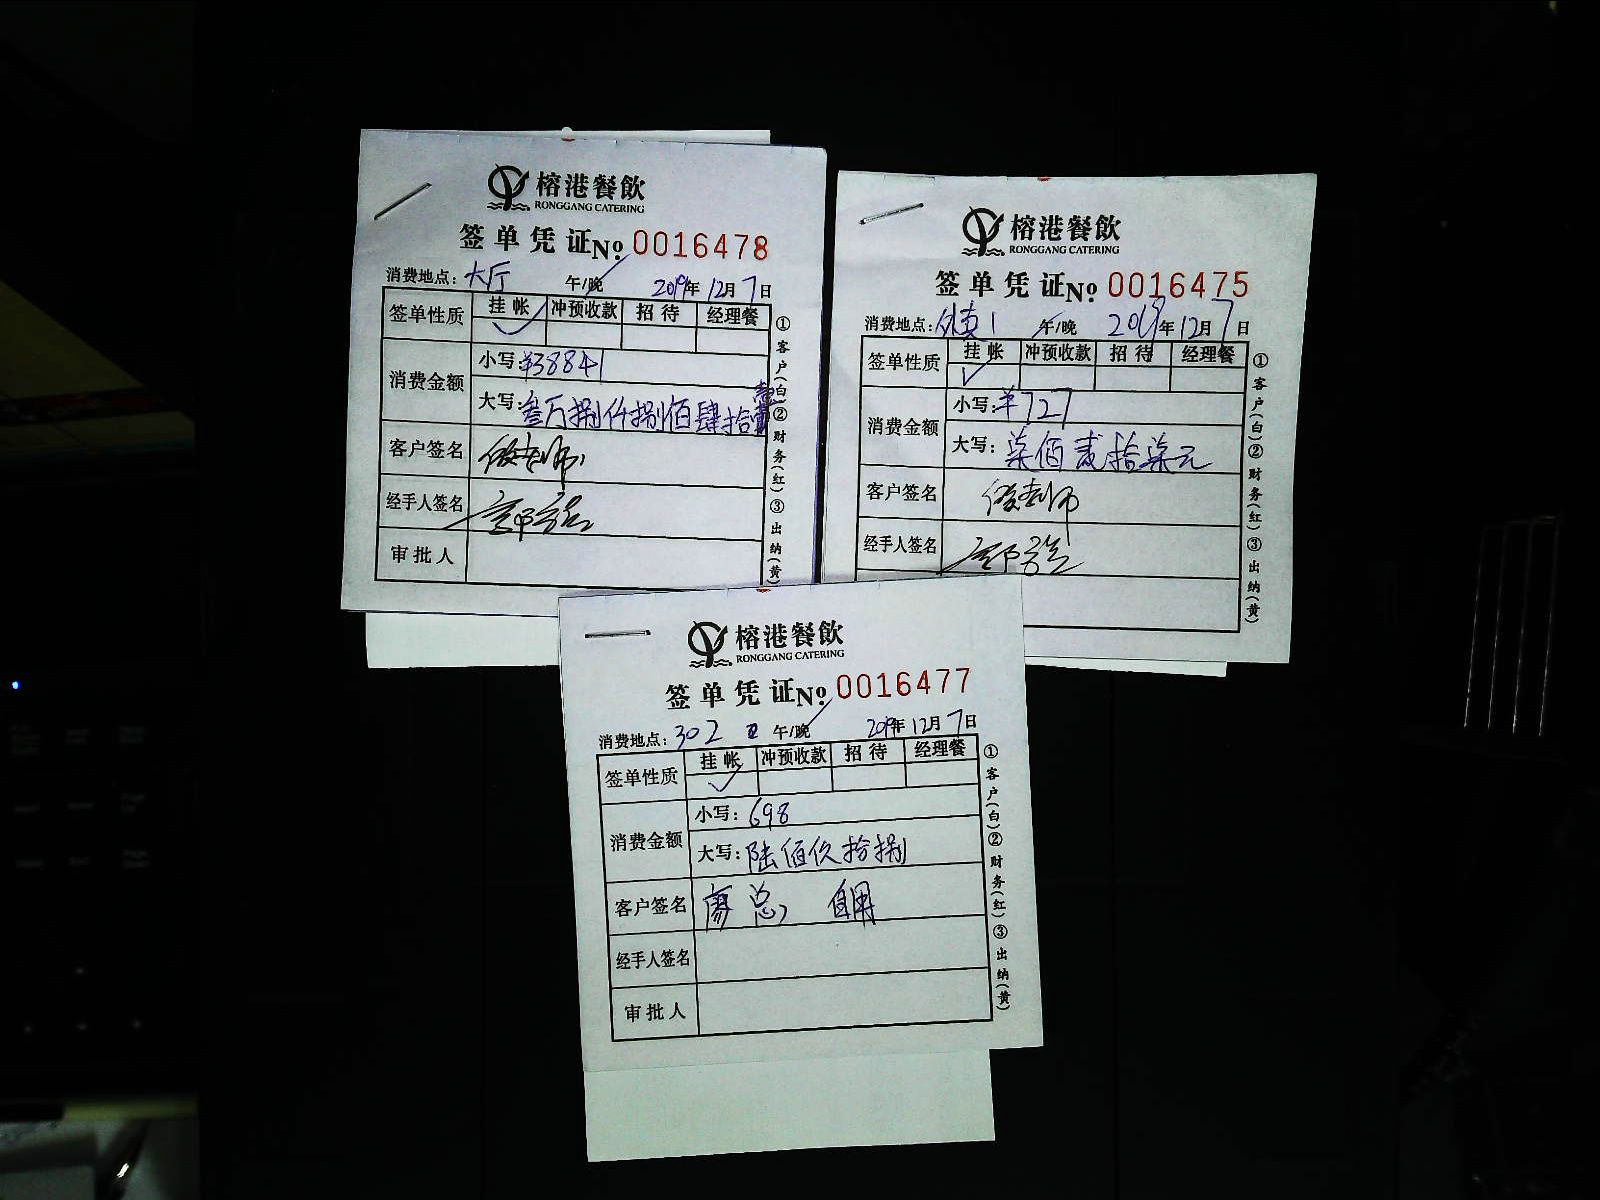 榕港餐飲
RONGGANG CATERING
签单凭证 No. 0016478
消费地点：大厅 午/晚 2019年12月7日
签单性质 挂帐 冲预收款 招待 经理餐
消费金额
小写：¥38841
大写：叁万捌仟捌佰肆拾壹
客户签名
经手人签名
审批人
①客户(白)②财务(红)③出纳(黄)
榕港餐飲
RONGGANG CATERING
签单凭证 No. 0016475
消费地点： 1 午/晚 2019年12月7日
签单性质 挂帐 冲预收款 招待 经理餐
消费金额
小写：¥727
大写：柒佰贰拾柒元
客户签名
经手人签名
①客户(白)②财务(红)③出纳(黄)
榕港餐飲
RONGGANG CATERING
签单凭证 No. 0016477
消费地点：302 午/晚 2019年12月7日
签单性质 挂帐 冲预收款 招待 经理餐
消费金额
小写：698
大写：陆佰玖拾捌
客户签名 廖总 自用
经手人签名
审批人
①客户(白)②财务(红)③出纳(黄)